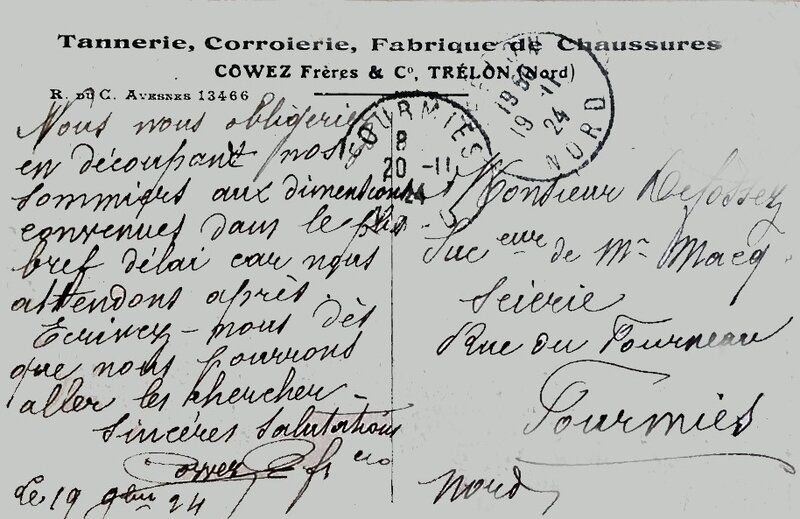 Tannerie, Corroierie, Fabrique de Chaussures
COWEZ Frères & Co, TRÉLON (Nord)
R. DU C. AVESNES 13466
Nous nous obligeriez
en découpant nos
sommiers aux dimensions
convenues dans le plus
bref délai car nous
attendons après.
Ecrivez-nous dès
que nous pourrons
aller les chercher -
Sincères Salutations
Cowez f
Le 19 9bre 24
FOURMIES
8
20 -11
24
1930
19 -11
24
NORD
Monsieur Defossez
Suceur de Mr Macq
Scierie
Rue du Fourneau
Fourmies
Nord